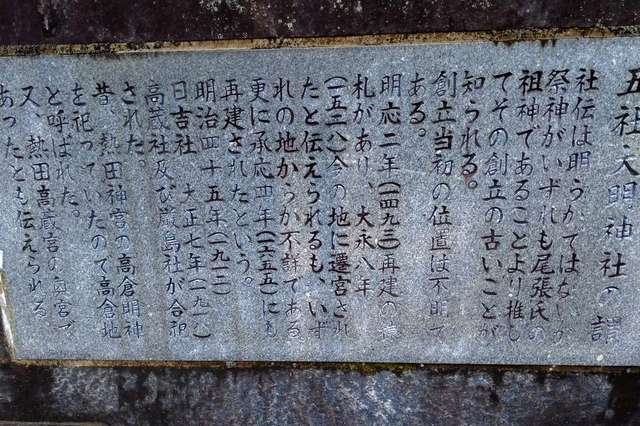 五社大明神社の謂
社伝は明らかではないが
祭神がいずれも尾張氏の
祖神であることより推し
てその創立の古いことが
知られる。
創立当初の位置は不明で
ある。
明応二年(一四九三)再建の棟
札があり、大永八年
(一五二八)今の地に遷宮され
たと伝えられるも、いず
れの地からか不詳である。
更に承応四年(一六五五)にも
再建されたという。
明治四十五年(一九一二)
日吉社 大正七年(一九一八)
高蔵社及び厳島社が合祀
された。
昔、熱田神宮の高倉明神
を祀っていたので高倉地
と呼ばれた。
又、熱田高蔵宮の奥宮で
あったとも伝えられる